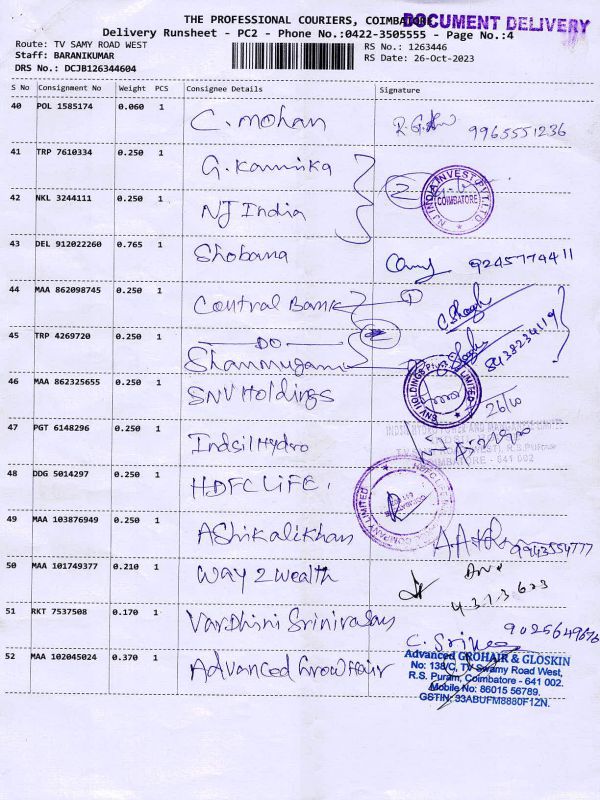 THE PROFESSIONAL COURIERS, COIMBATORE
DOCUMENT DELIVERY
Delivery Runsheet - PC2 - Phone No.:0422-3505555 - Page No.:4
Route: TV SAMY ROAD WEST
RS No.: 1263446
Staff: BARANIKUMAR
RS Date: 26-Oct-2023
DRS No.: DCJB126344604
S No Consignment No Weight PCS Consignee Details Signature
40 POL 1585174 0.060 1 C. Mohan 9965551236
41 TRP 7610334 0.250 1 G. Kannika 2
42 NKL 3244111 0.250 1 NJ India
NJ INDIA INVEST PVT LTD COIMBATORE
43 DEL 912022260 0.765 1 Shobana 9245774411
44 MAA 862098745 0.250 1 Central Bank 1
45 TRP 4269720 0.250 1 DO 2
Shanmugam 8438234119
46 MAA 862325655 0.250 1 SNV Holdings 26/10
LIMITED
47 PGT 6148296 0.250 1 Indsil Hydro
COIMBATORE - 641 002
48 DDG 5014297 0.250 1 HDFC LIFE.
49 MAA 103876949 0.250 1 AShikalikhan 9943554777
50 MAA 101749377 0.210 1 Way 2 Wealth
51 RKT 7537508 0.170 1 Vardhini Srinivasan 9025649676
52 MAA 102045024 0.370 1 Advanced GrowHair
Advanced GROHAIR & GLOSKIN
No: 138/C, TV Swamy Road West,
R.S. Puram, Coimbatore - 641 002.
Mobile No: 86015 56789.
GSTIN: 33ABUFM8880F1ZN.